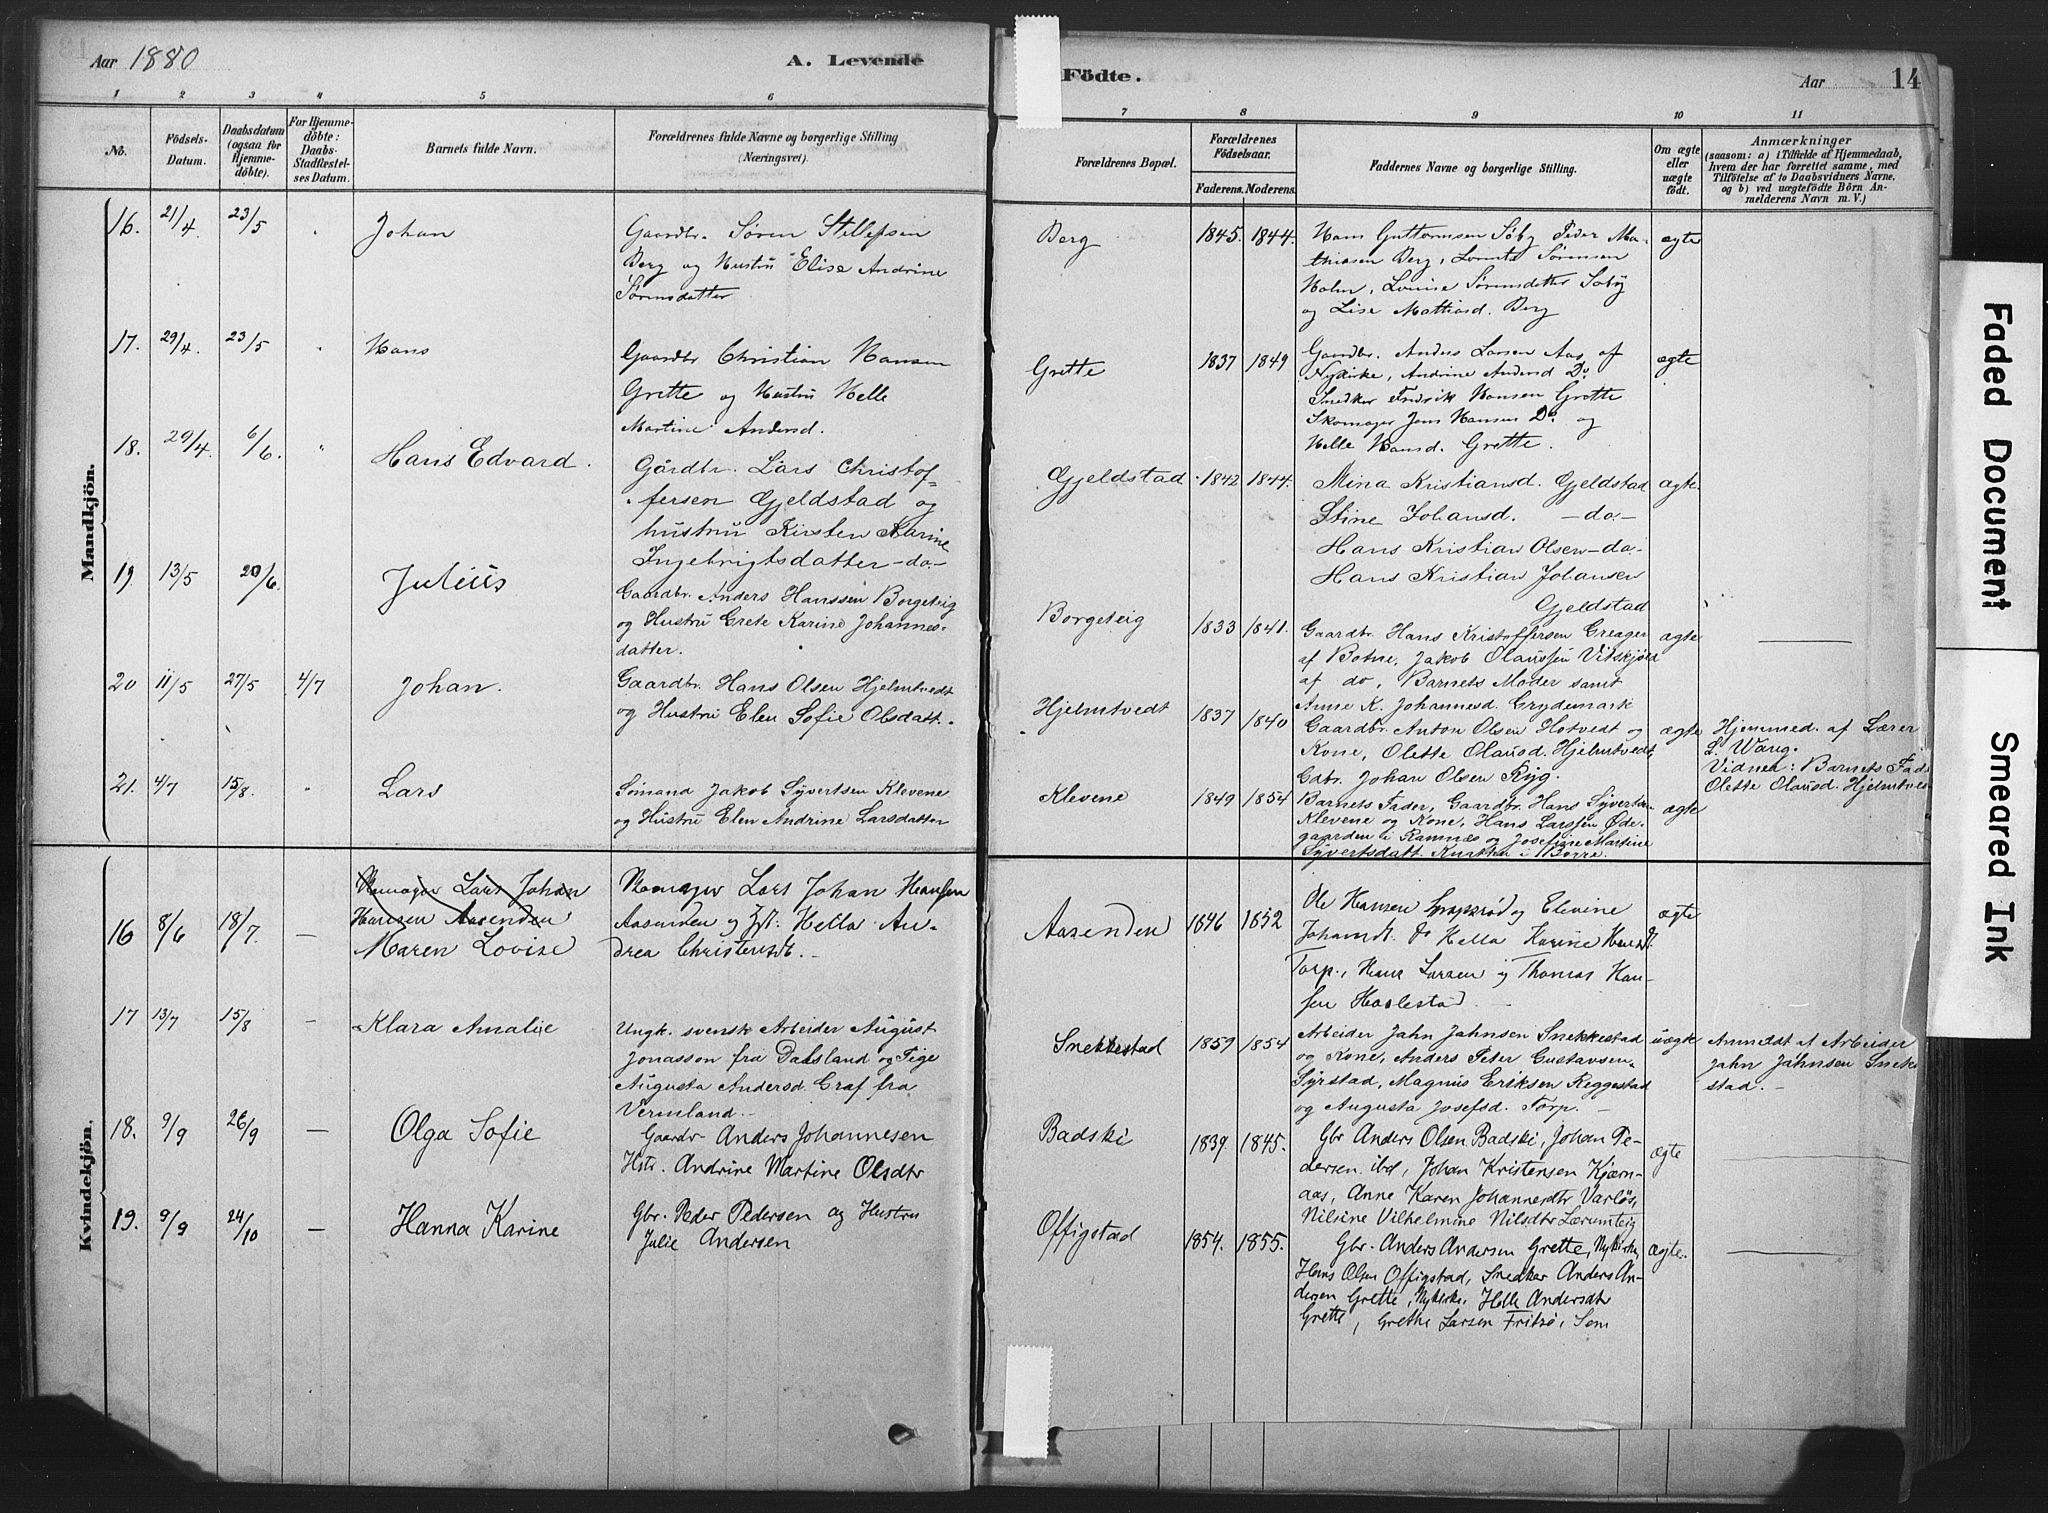 Aar 1880
A. Levende
Födte.
Aar
14
1 2 3 4 5 6 7 8 9 10 11
No.
Födsels-
Datum.
Daabsdatum
(ogsaa for
Hjemme-
döbte).
For Hjemme-
döbte:
Daabs-
Stadfæstel-
ses Datum.
Barnets fulde Navn.
Forældrenes fulde Navne og borgerlige Stilling
(Næringsvei).
Forældrenes Bopæl.
Forældrenes
Födselsaar.
Faderens. Moderens.
Faddernes Navne og borgerlige Stilling.
Om ægte
eller
uægte
födt.
Anmærkninger
(saasom: a) i Tilfælde af Hjemmedaab,
hvem der har forrettet samme, med
Tilföielse af to Daabsvidners Navne,
og b) ved uægtefödte Börn An-
melderens Navn m. V.)
Mandkjön.
16. 21/4. 23/5 Johan
Gaardbr. Søren
Berg og Hustru Elise Andrine
Sørensdatter
Berg 1845. 1844.
Hans Guttormsen Søby Peder Ma-
thiasen Berg, Sørensen
Holm, Louise Sørensdatter Søby
og Lise Mathiasd. Berg
ægte
17. 29/4. 23/5 Hans
Gaardbr Christian Hansen
Grette og Hustru Helle
Martine Andersd.
Grette 1837 1849
Gaardbr. Anders Larsen Aas af
Nykirke, Andrine Andersd Do.
Snedker Fredrik Hansen Grette
Skomager Jens Hansen Do og
Helle Hansd. Grette.
ægte
18. 29/4. 6/6. " Hans Edvard.
Gårdbr. Lars Christof-
fersen Gjeldstad og
hustru Kirsten Karine
Ingebrigtsdatter -do-
Gjeldstad 1842 1844.
Mina Kristiansd. Gjeldstad
Stine Johansd. -do-
Hans Kristian Olsen -do-
Hans Kristian Johansen
Gjeldstad
ægte.
19 13/5 20/6 Julius
Gaardbr. Anders Hanssen Borgeteig
og Hustru Grete Karine Johannes-
datter.
Borgeteig 1833 1841.
Gaardbr. Hans Kristoffersen Greager
af Botne, Jakob Olaussen Vitskjøld
af do, Barnets Moder samt
Anne K. Johannesd. Grydemark
ægte
20 11/5 27/5 4/7 Johan.
Gaardbr. Hans Olsen Hjelmtvedt
og Hustru Elen Sofie Olsdatt.
Hjelmtvedt 1837 1840
Gaardbr. Anton Olsen Hotvedt og
Kone, Olette Olausd. Hjelmtvedt,
Gdbr. Johan Olsen Ryg.
ægte
Hjemmed. af Lærer
L. Wang.
Vidner: Barnets Fad
Olette Olausd. Hjelmtve
21. 4/7 15/8. " Lars
Sømand Jakob Syvertsen Klevene
og Hustru Elen Andrine Larsdatter
Klevene 1849 1854
Barnets Fader, Gaardbr. Hans Syverts-
Klevene og Kone, Hans Larssen Øde-
gaarden i Ramnæs og Josefine Martine
Syvertsdatt. i Borre.
ægte
Kvindekjön.
16 8/6 18/7. —
Skomager Lars Johan
Hansen Aasenden
Maren Lovise
Skomager Lars Johan Hansen
Aasenden og Hst: Hella An-
drea Christensdt. —
Aasenden 1846 1852
Ole Hansen og Elevine
Johansdt. Do Hella Karine Hansdt.
Torp., Hans Larsen og Thomas Han-
sen Haslestad. —
ægte
17 13/7 15/8 — Klara Amalie
Ungk. svensk Arbeider August
Jonasson fra Dalsland og Pige
Augusta Andersd. Graf fra
Vermland. —
Snekkestad 1859 1854
Arbeider Jahn Jahnsen Snekkestad
og Kone, Anders Peter Gustavsen-
Syrstad, Magnus Eriksen Reggestad
og Augusta Josefsd. Torp. —
uægte
Anmeldt af Arbeider
Jahn Jahnsen Snek
stad. —
18. 9/9 26/9 — Olga Sofie
Gaardbr Anders Johannesen
Hstr. Andrine Martine Olsdtr
Badski 1839. 1845.
Gbr Anders Olsen Badski, Johan Pe-
dersen ibd, Johan Kristensen Kjærn-
aas, Anne Karen Johannesdtr Varløs,
Nilsine Vilhelmine Nilsdtr Lærumteig
ægte
19. 9/9 24/10 — Hanna Karine
Gbr. Peder Pedersen og Hustru
Julie Andersen
Offigstad 1854. 1855.
Gbr. Anders Andersen Grette, Nykirke,
Hans Olsen Offigstad, Snedker Anders An-
dersen Grette, Nykirke. Helle Andersdtr
Grette, Grethe Larsen Fritzø, Sem
ægte.
Faded Document
Smeared Ink